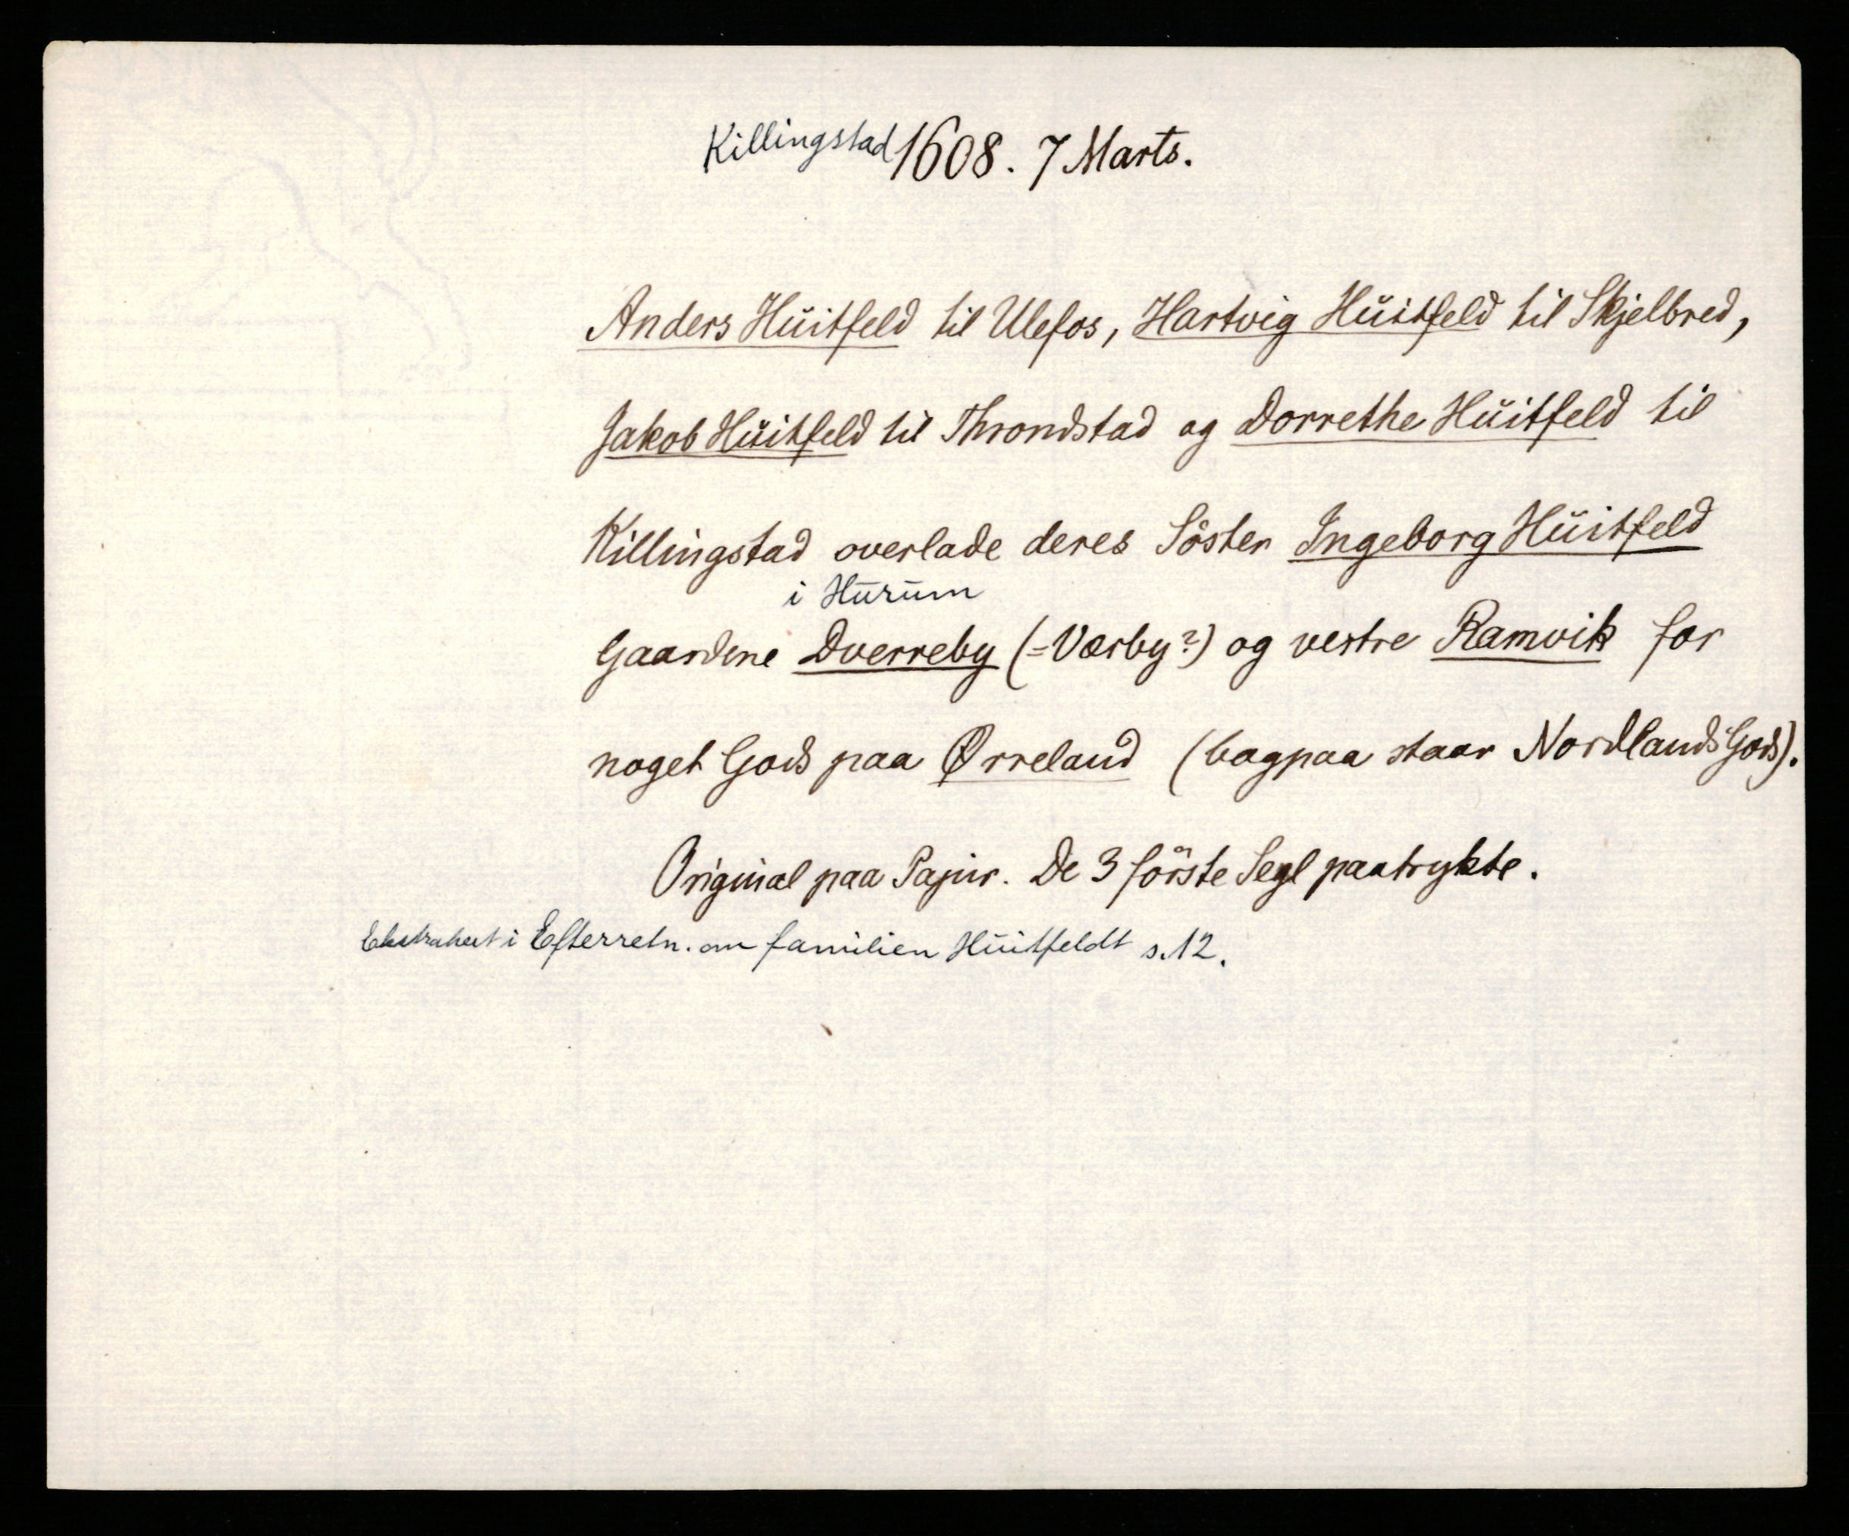 Killingstad 1608. 7 Marts.
Anders Hŭitfeld til Ulefos, Hartvig Hŭitfeld til Skjelbred,
Jakob Hŭitfeld til Throndstad og Dorrethe Hŭitfeld til
Killingstad overlade deres Söster Ingeborg Hŭitfeld
i Hūrūm
Gaardene Dverreby (=Værby?) og vestre Ramvik for
noget Gods paa Ørreland (bagpaa staar NordlandsGods).
Original paa Papir. De 3 förste Segl paatrykte.
Ekstrahert i Efterretn. om familien Hūitfeldt s. 12.